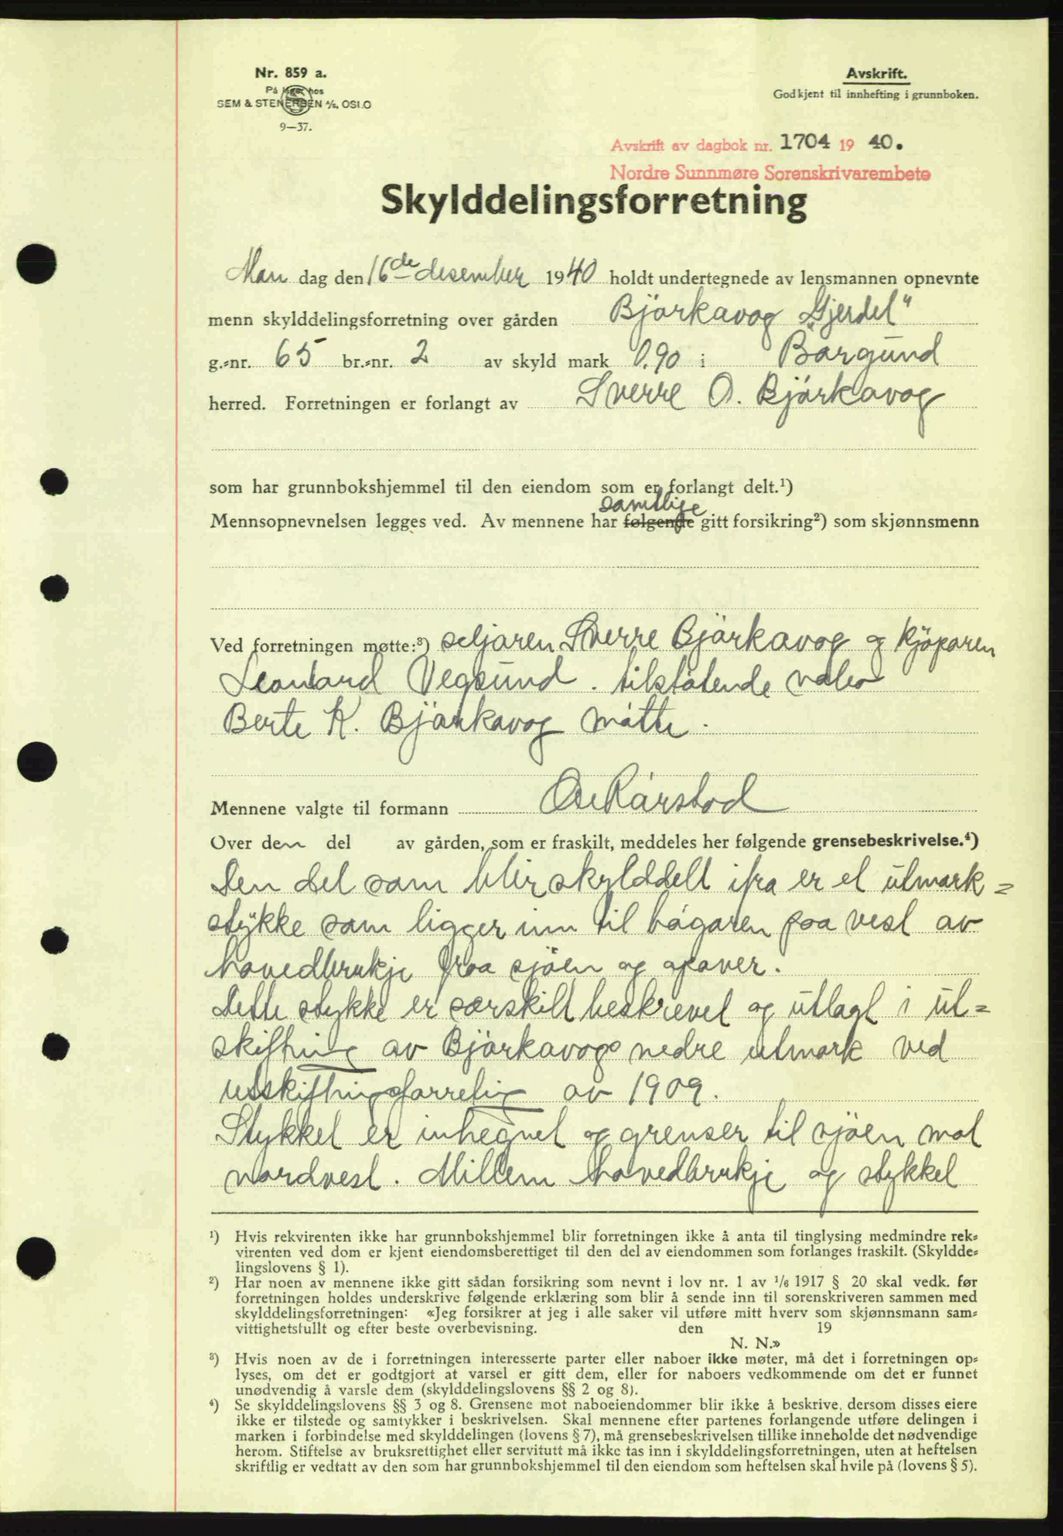 Nr. 859 a.
På lager hos
SEM & STENERSEN A/S, OSLO
9—37.
Avskrift.
Godkjent til innhefting i grunnboken.
Avskrift av dagbok nr. 1704 19 40.
Nordre Sunnmøre Sorenskrivarembete
Skylddelingsforretning
Man dag den 16de desember 1940 holdt undertegnede av lensmannen opnevnte
menn skylddelingsforretning over gården Björkavog „Gjerdet"
g.-nr. 65 br.-nr. 2 av skyld mark 0,90 i Borgund
herred. Forretningen er forlangt av Sverre O. Björkavog
som har grunnbokshjemmel til den eiendom som er forlangt delt.¹)
samtlige
Mennsopnevnelsen legges ved. Av mennene har følgende gitt forsikring²) som skjønnsmenn
Ved forretningen møtte:³) seljaren Sverre Björkavog og kjöparen
Leonard Vegsund. tilstötende nabo
Berte K. Björkavog mötte.
Mennene valgte til formann Ole Rörstad
Over den del av gården, som er fraskilt, meddeles her følgende grensebeskrivelse.⁴)
Den del som blir skylddelt ifra er et utmark-
stykke som ligger inn til högaren paa vest av
hovedbrukje fraa sjöen og opover.
Dette stykke er særskilt beskrevet og utlagt i ut-
skiftning av Björkavogs nedre utmark ved
utskiftningsforretnig av 1909.
Stykket er inhegnet og grenser til sjöen mot
nordvest. Millem hovedbrukje og stykket
¹) Hvis rekvirenten ikke har grunnbokshjemmel blir forretningen ikke å anta til tinglysing medmindre rek-
virenten ved dom er kjent eiendomsberettiget til den del av eiendommen som forlanges fraskilt. (Skyldde-
lingslovens § 1).
²) Har noen av mennene ikke gitt sådan forsikring som nevnt i lov nr. 1 av 1/6 1917 § 20 skal vedk. før
forretningen holdes underskrive følgende erklæring som blir å sende inn til sorenskriveren sammen med
skylddelingsforretningen: «Jeg forsikrer at jeg i alle saker vil utføre mitt hverv som skjønnsmann sam-
vittighetsfullt og efter beste overbevisning. den 19
N. N.»
³) Hvis noen av de i forretningen interesserte parter eller naboer ikke møter, må det i forretningen op-
lyses, om det er godtgjort at varsel er gitt dem, eller for naboers vedkommende om det er funnet
unødvendig å varsle dem (skylddelingslovens §§ 2 og 8).
⁴) Se skylddelingslovens §§ 3 og 8. Grensene mot naboeiendommer blir ikke å beskrive, dersom disses eiere
ikke er tilstede og samtykker i beskrivelsen. Skal mennene efter partenes forlangende utføre delingen i
marken i forbindelse med skylddelingen (lovens § 7), må grensebeskrivelsen tillike inneholde det nødvendige
herom. Stiftelse av bruksrettighet eller servitutt må ikke tas inn i skylddelingsforretningen, uten at heftelsen
skriftlig er vedtatt av den som har grunnbokshjemmel til den eiendom som heftelsen skal hvile på (lovens § 5).